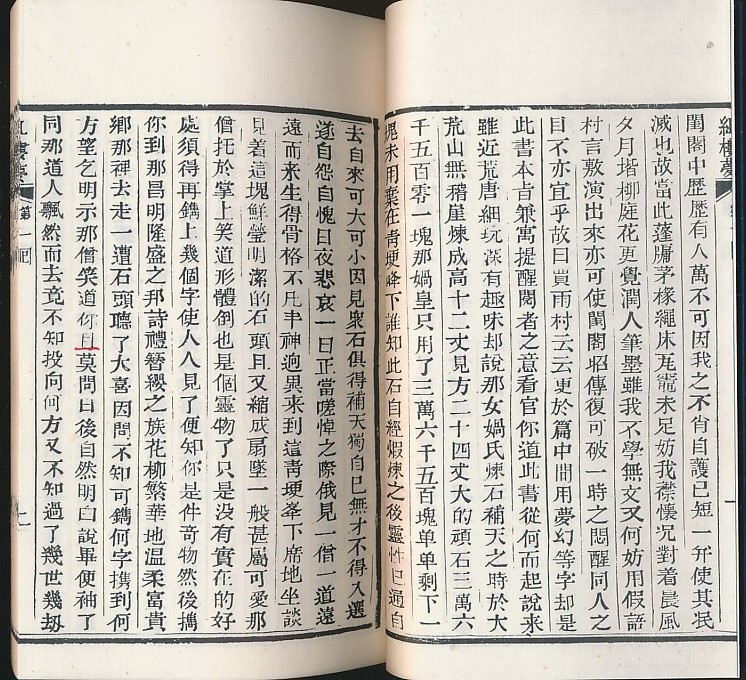 紅樓夢
閨閣中歷歷有人萬不可因我之不肖自護已短一并使其泯
滅也故當此蓬牖茅椽繩床瓦竈未足妨我襟懷况對着晨風
夕月堦柳庭花更覺潤人筆墨雖我不學無文又何妨用假語
村言敷演出來亦可使閨閣昭傳復可破一時之悶醒同人之
目不亦宜乎故曰賈雨村云云更於篇中間用夢幻等字却是
此書本旨兼寓提醒閱者之意看官你道此書從何而起說來
雖近荒唐細玩深有趣味却說那女媧氏煉石補天之時於大
荒山無稽崖煉成高十二丈見方二十四丈大的頑石三萬六
千五百零一塊那媧皇只用了三萬六千五百塊单单剩下一
塊未用棄在青埂峰下誰知此石自經煆煉之後靈性已通自
去自來可大可小因見衆石俱得補天獨自己無才不得入選
遂自怨自愧日夜悲哀一日正當嗟悼之際俄見一僧一道遠
遠而來生得骨格不凡丰神迥異來到這青埂峯下席地坐談
見着這塊鮮瑩明潔的石頭且又縮成扇墜一般甚屬可愛那
僧托於掌上笑道形體倒也是個靈物了只是沒有實在的好
處須得再鐫上幾個字使人人見了便知你是件奇物然後携
你到那昌明隆盛之邦詩禮簪纓之族花柳繁華地温柔富貴
鄉那裡去走一遭石頭聽了大喜因問不知可鐫何字携到何
方望乞明示那僧笑道你且莫問日後自然明白說畢便袖了
同那道人飄然而去竟不知投向何方又不知過了幾世幾劫
紅樓夢 第一回